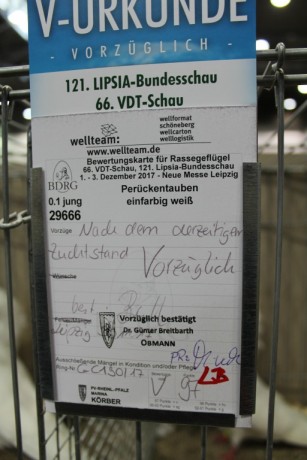 V-URKUNDE
- VORZÜGLICH -
121. LIPSIA-Bundesschau
66. VDT-Schau
wellteam:
wellformat
schöneberg
wellcarton
welllogistik
www.wellteam.de
Bewertungskarte für Rassegeflügel
66. VDT-Schau, 121. Lipsia-Bundesschau
1. - 3. Dezember 2017 - Neue Messe Leipzig
BDRG
0.1 jung
29666
Perückentauben
einfarbig weiß
Vorzüge Nach dem derzeitigen
Zuchtstand Vorzüglich
Wünsche
Vorzüglich bestätigt
Dr. Günter Breitbarth
OBMANN
Ausschließende Mängel in Kondition und/oder Pflege
Ring-Nr.
V 97
LB
PV-RHEINL.-PFALZ
MARINA
KÖRBER